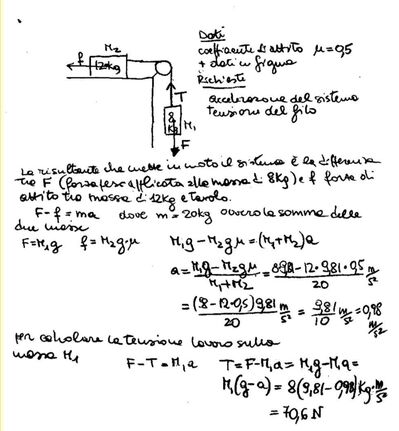 M2
f
12kg
T
8
kg
M1
F
Dati
coefficiente di attrito μ=0,5
+ dati in figura
Richieste
accelerazione del sistema
tensione del filo
La risultante che mette in moto il sistema è la differenza
tra F (forza peso applicata alla massa di 8kg) e f forza di
attrito tra massa di 12kg e tavolo.
F-f=ma dove m=20kg ovvero la somma delle
due masse
F=M1g f=M2g·μ M1g-M2gμ=(M1+M2)a
a=M1g-M2gμ/M1+M2=8·9,81-12·9,81·0,5/20 m/s²
=(8-12·0,5)9,81/20 m/s² = 9,81/10 m/s²=0,98 m/s²
per calcolare la tensione lavoro sulla
massa M1 F-T=M1a T=F-M1a=M1g-M1a=
M1(g-a)=8(9,81-0,98)kg·m/s²
=70,6N